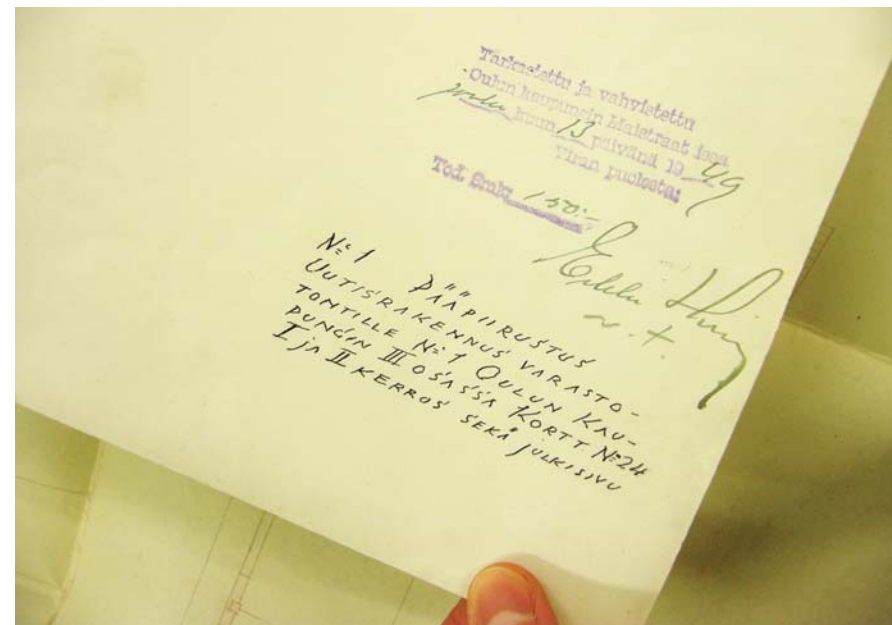 Tarkastettu ja vahvistettu
Oulun kaupungin Maistraatissa
joulu kuun 13 päivänä 19 49
Viran puolesta:
Tod. 150:-
Erkki
v.t.
N:o 1 PÄÄPIIRUSTUS
UUTISRAKENNUS VARASTO-
TONTILLE N:o 1 OULUN KAU-
PUNGIN III OSASSA KORTT. N:o 24
I JA II KERROS SEKÄ JULKISIVU